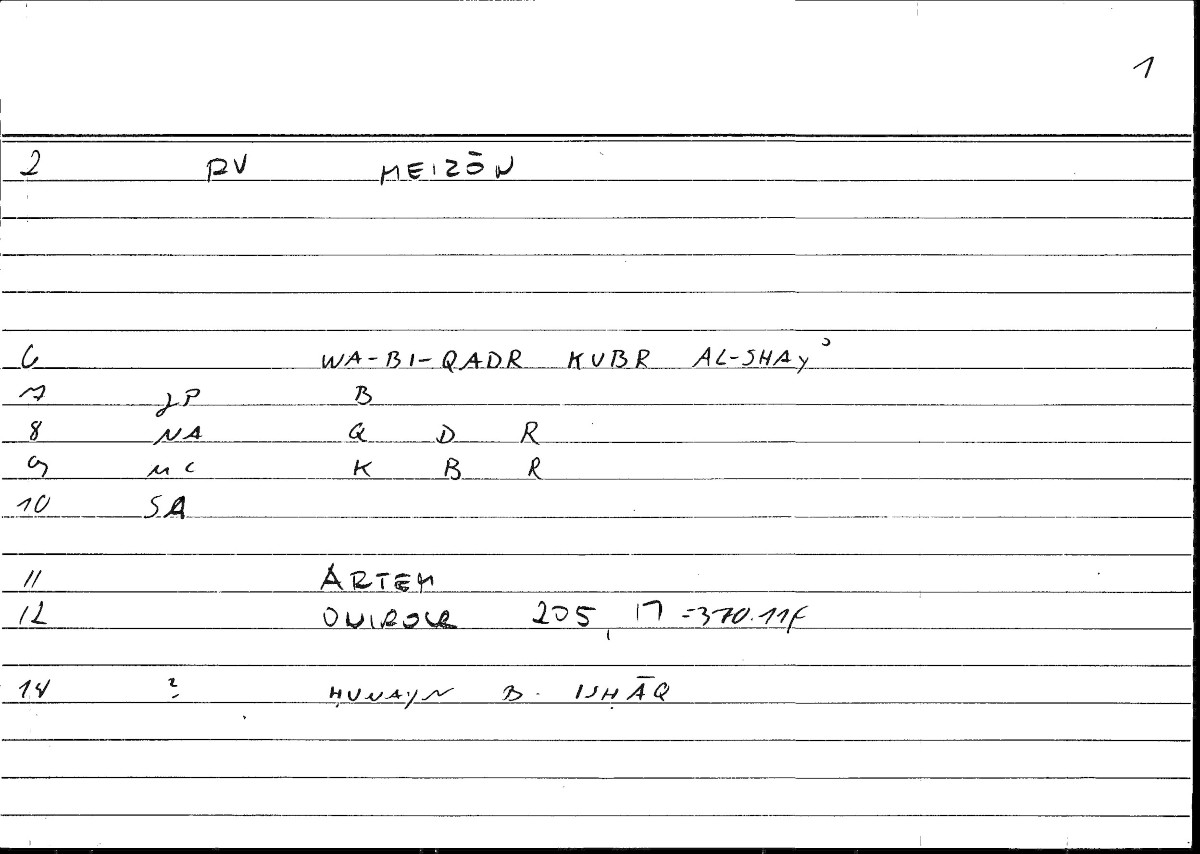 1
2 RV MEIZŌN
6 WA-BI-QADR KUBR AL-SHAYʾ
7 JP B
8 NA Q D R
9 MC K B R
10 SA
11 ARTEM
12 ONIROCR 205, 17 =370.11f
14 ? ḤUNAYN B. ISḤĀQ